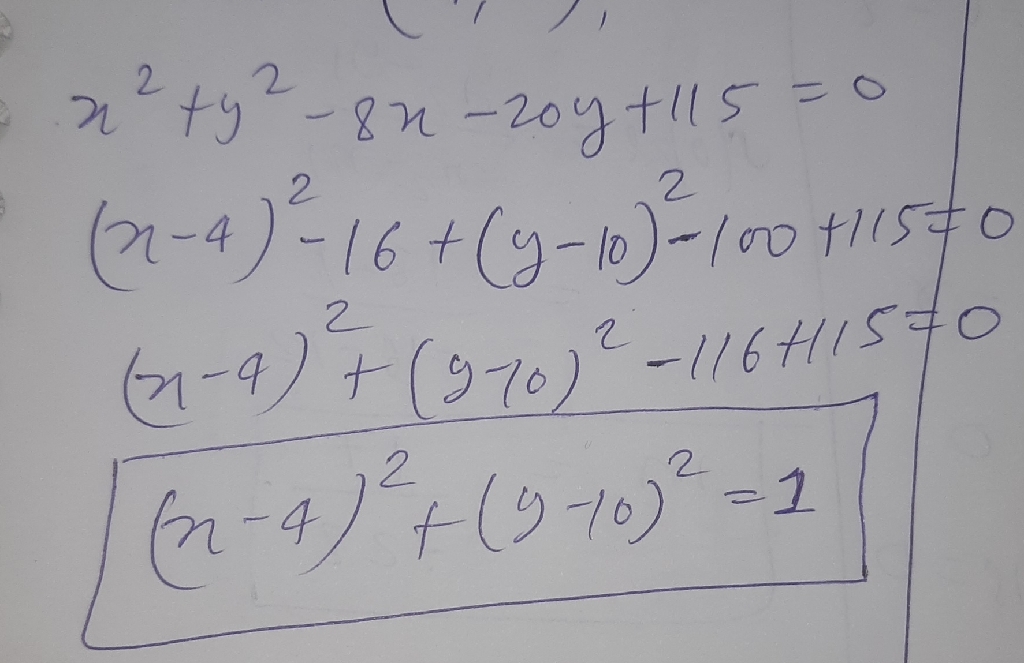 x² + y² - 8x - 20y + 115 = 0
(x-4)² - 16 + (y-10)² - 100 + 115 = 0
(x-4)² + (y-10)² - 116 + 115 = 0
(x-4)² + (y-10)² = 1